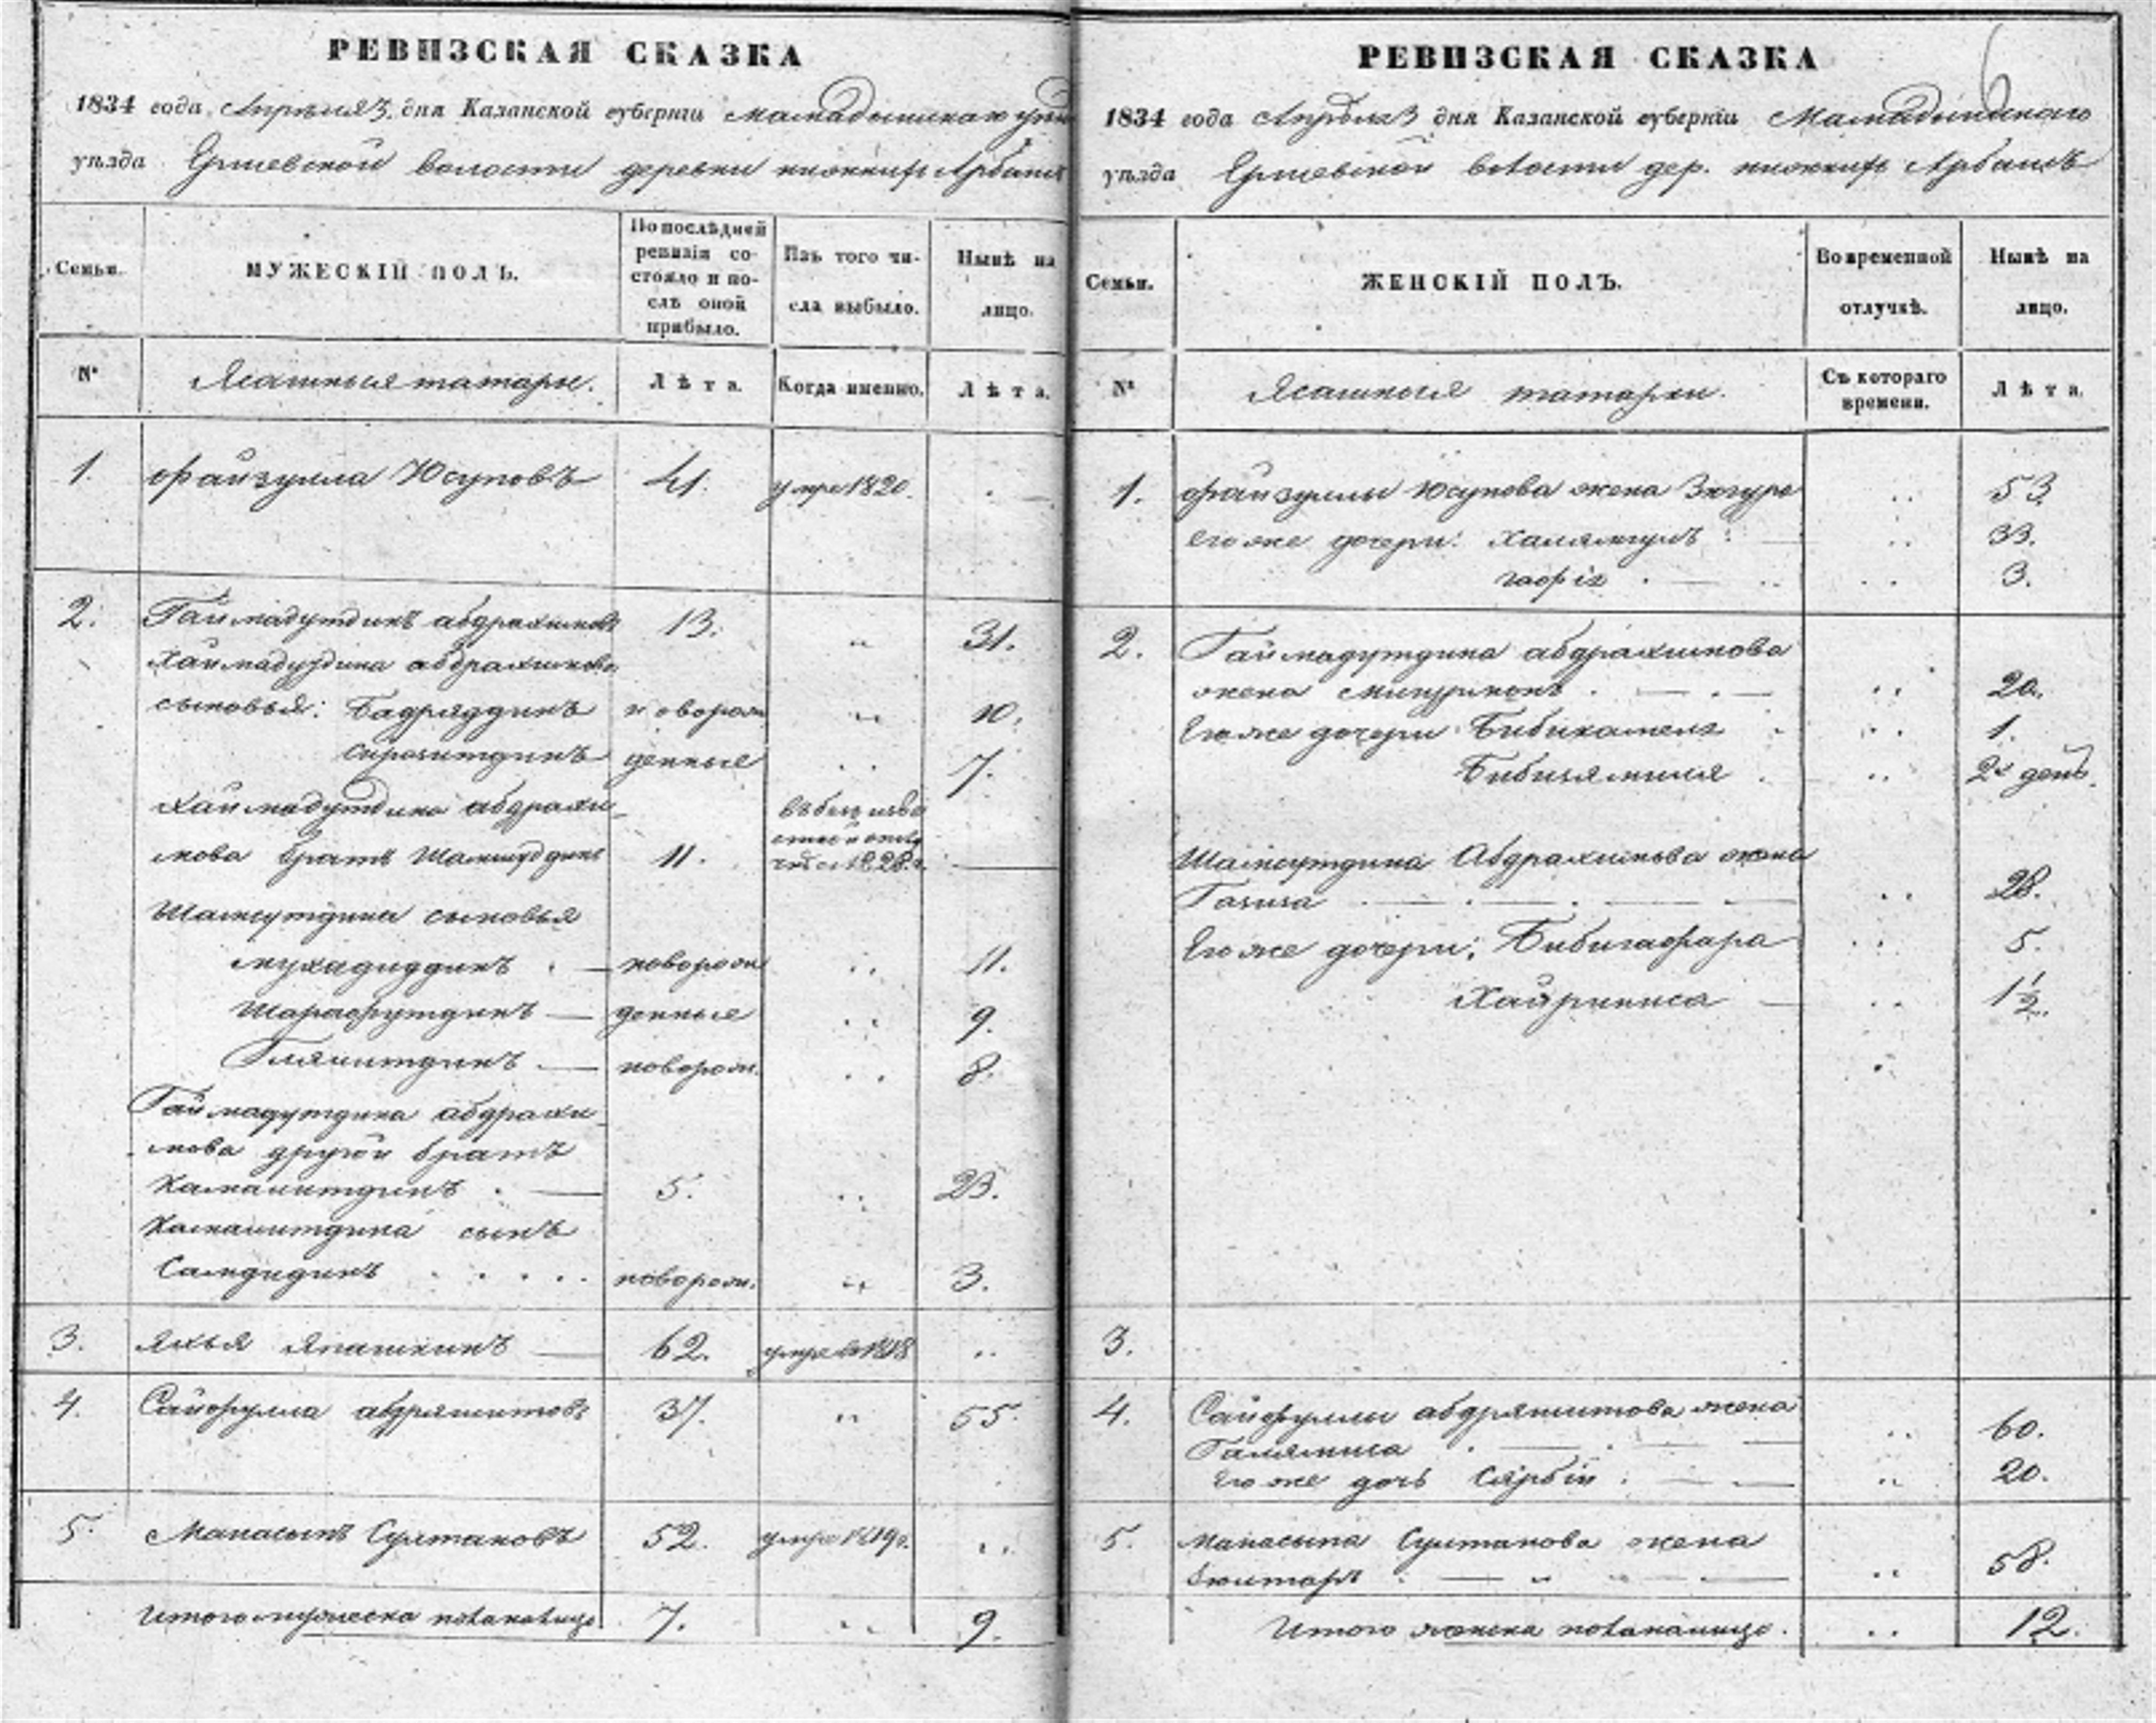 РЕВИЗСКАЯ СКАЗКА
1834 года Апреля 3. дня Казанской губернiи Мамадышскаго
уѣзда Ершевской волости деревни нижнихъ Арбашъ
Семьи.
МУЖЕСКIЙ ПОЛЪ.
По послѣдней ревизiи состояло и послѣ оной прибыло.
Изъ того числа выбыло.
Нынѣ на лицо.
№
Ясашныя татары.
Лѣта.
Когда именно.
Лѣта.
1. Файзулла Юсуповъ 41. умре 1820.
2. Гаймадутдинъ абдрахимовъ 13. „ 31.
Хаймадутдина абдрахимова
сыновья: Бадряддинъ новорож „ 10.
Сирозитдинъ денные „ 7.
Хаймадутдина абдрахи-
мова братъ Шамсуддинъ 11. въ безъизвѣстной отлучкѣ с 1828 г. —
Шамсутдина сыновья
мухадиддинъ — новорож „ 11.
Шарафутдинъ — денные „ 9.
Гляшитдинъ — новорож. „ 8.
Гаймадутдина абдрахи-
мова другой братъ
Камалитдинъ — 5. „ 23.
Камалитдина сынъ
Самдидинъ новорож. „ 3.
3. Яхья Япашкинъ — 62. умре в 1818 „
4. Сайфулла абдряшитовъ 37. „ 55.
5. Манасыпъ Султановъ 52. умре 1819 г. „
Итого мужеска пола налицо 7. „ 9.
РЕВИЗСКАЯ СКАЗКА
6
1834 года Апрѣля 3 дня Казанской губернiи Мамадышскаго
уѣзда Ершевской волости дер. нижнихъ Арбашъ
Семьи.
ЖЕНСКIЙ ПОЛЪ.
Во временной отлучкѣ.
Нынѣ на лицо.
№
Ясашныя татарки.
Съ котораго времени.
Лѣта.
1. Файзуллы Юсупова жена Зюгуре „ 53.
Его же дочери: Халямгулъ : — „ 33.
гафiя . — „ 3.
2. Гаймадутдина абдрахимова
жена . — . — „ 20.
Его же дочери Бибикамеля „ 1.
Бибизямиля „ 2х день.
Шамсутдина Абдрахимова жена
Газиза — „ 28.
Его же дочери: Бибигафара „ 5.
Хайриниса — „ 1½.
3.
4. Сайфуллы абдряшитова жена
Галямниса — „ 60.
Его же дочь Сярбiи : — „ 20.
5. Манасыпа Султанова жена
Бюштаръ — „ 58.
Итого женска пола налицо. „ 12.